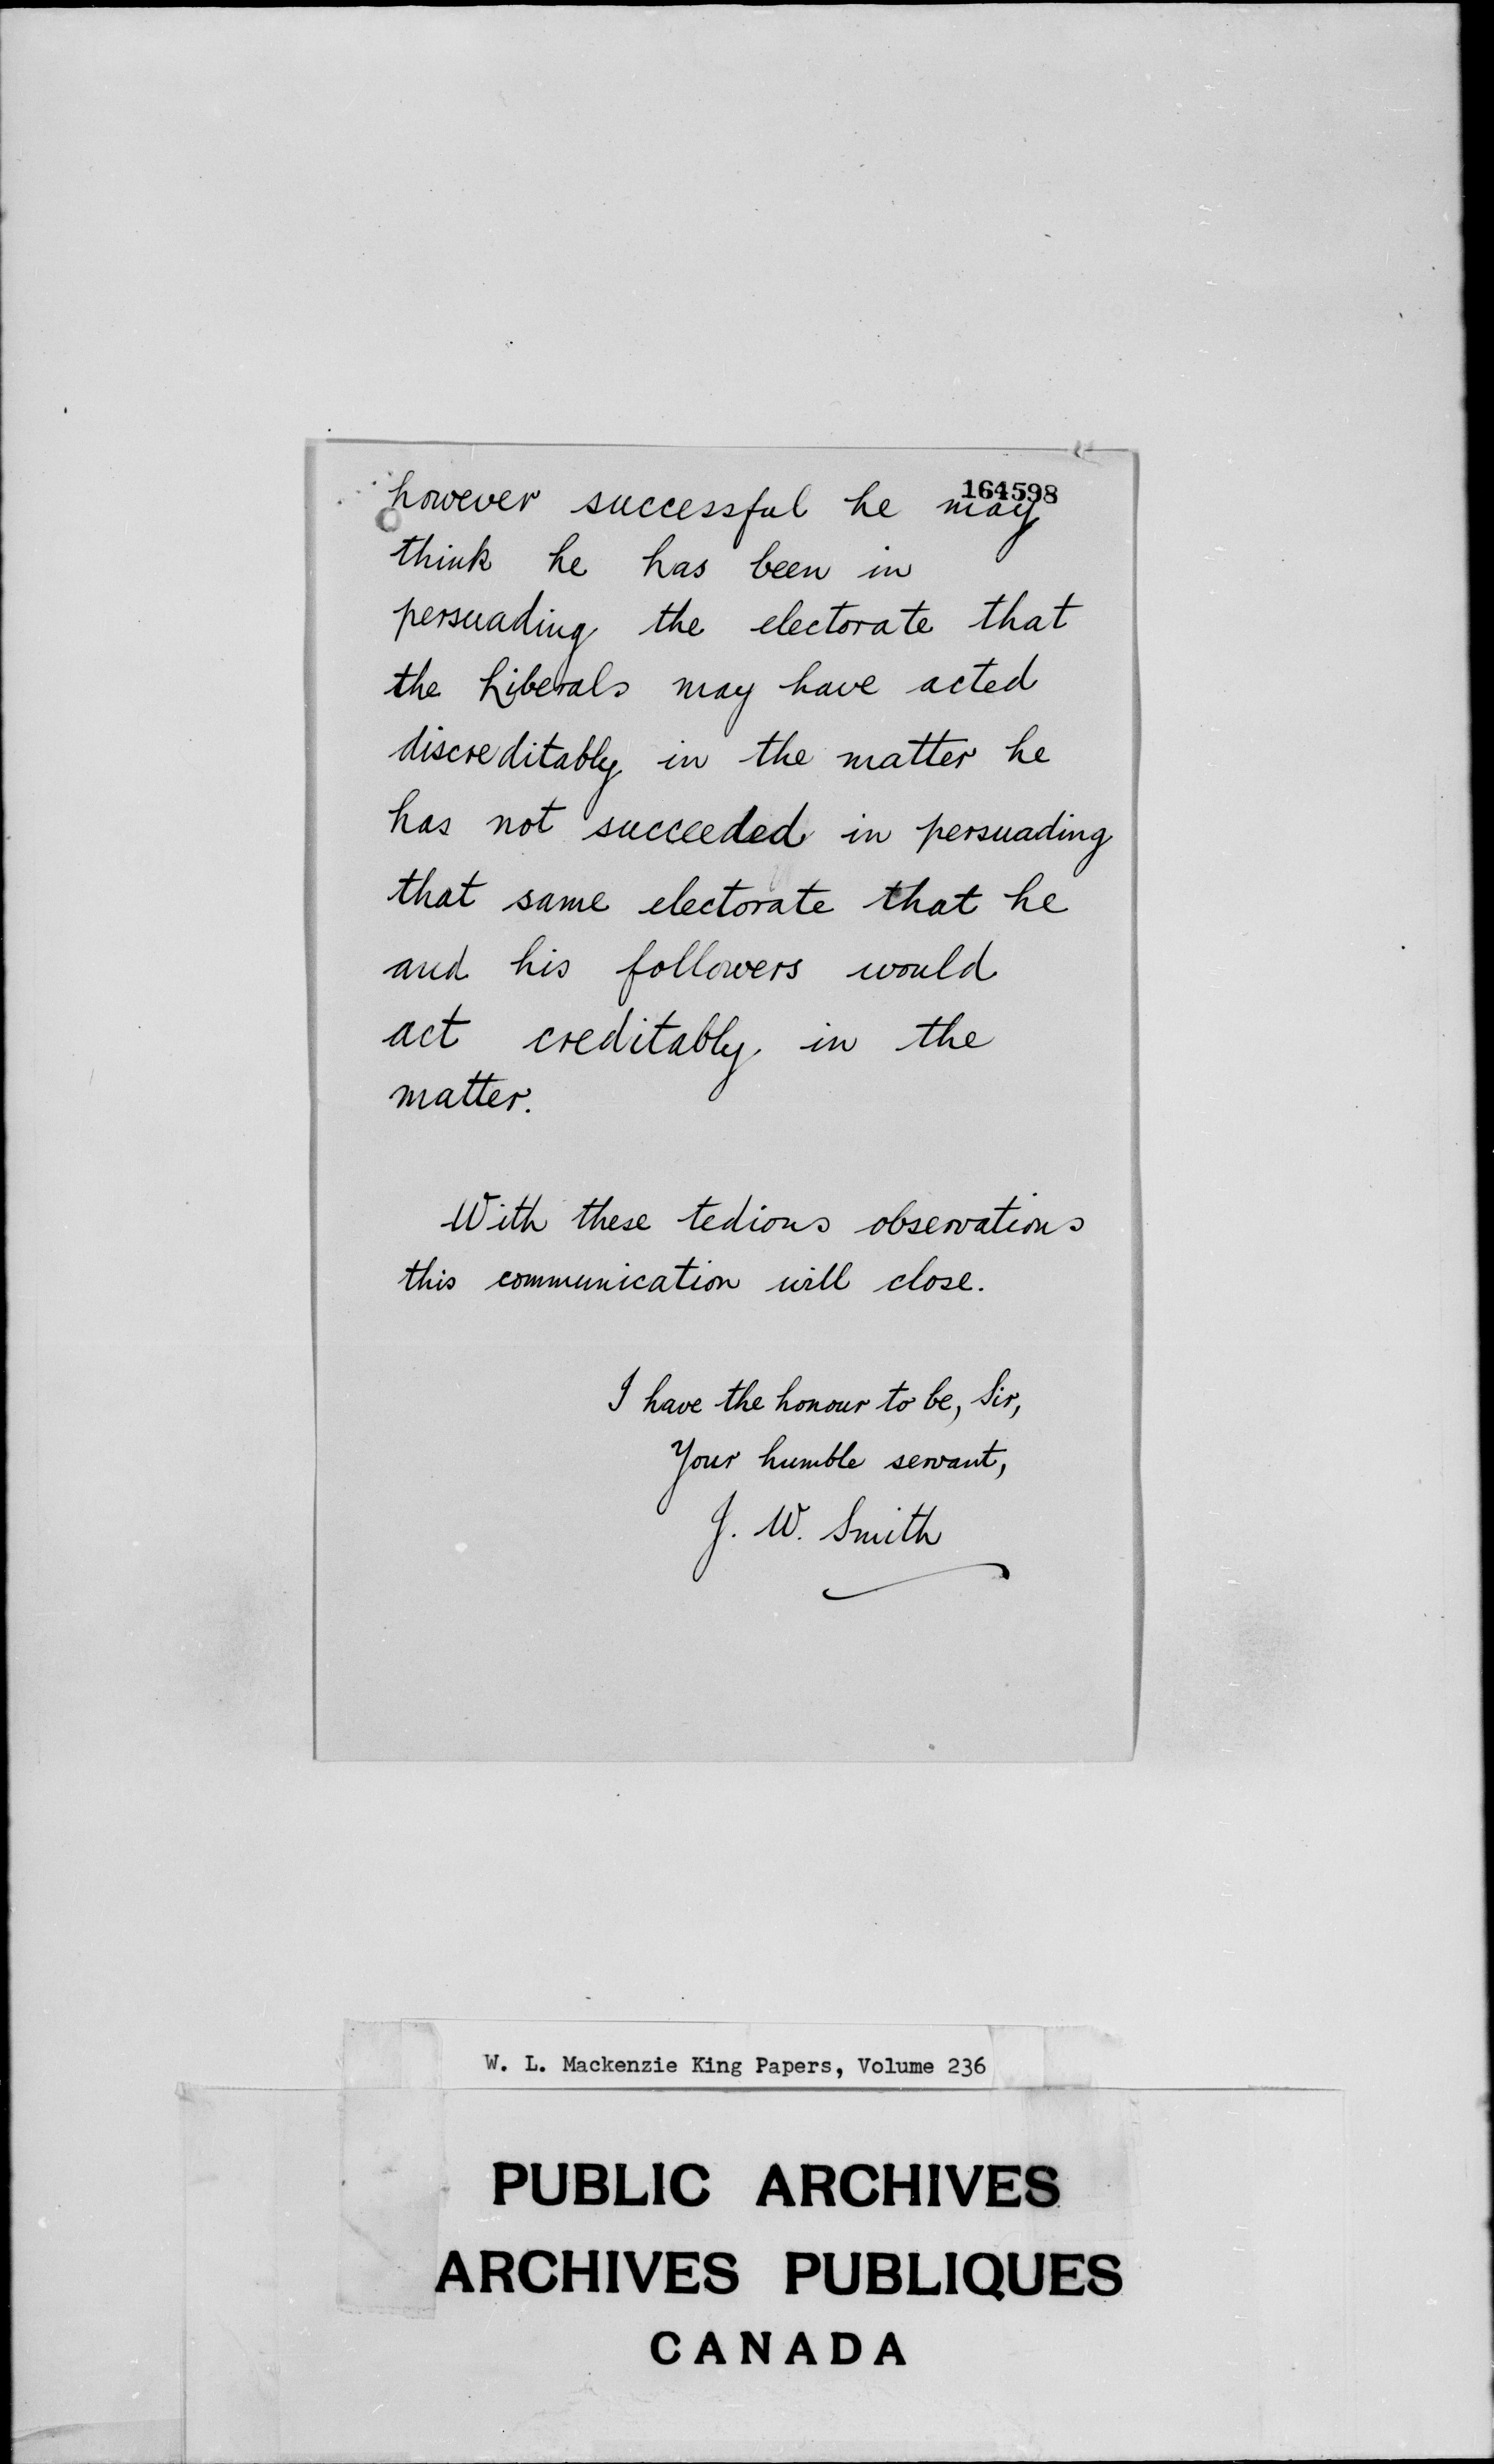 164598
however successful he may
think he has been in
persuading the electorate that
the Liberals may have acted
discreditably in the matter he
has not succeeded in persuading
that same electorate that he
and his followers would
act creditably in the
matter.
With these tedious observations
this communication will close.
I have the honour to be, Sir,
Your humble servant,
J. W. Smith
W. L. Mackenzie King Papers, Volume 236
PUBLIC ARCHIVES
ARCHIVES PUBLIQUES
CANADA